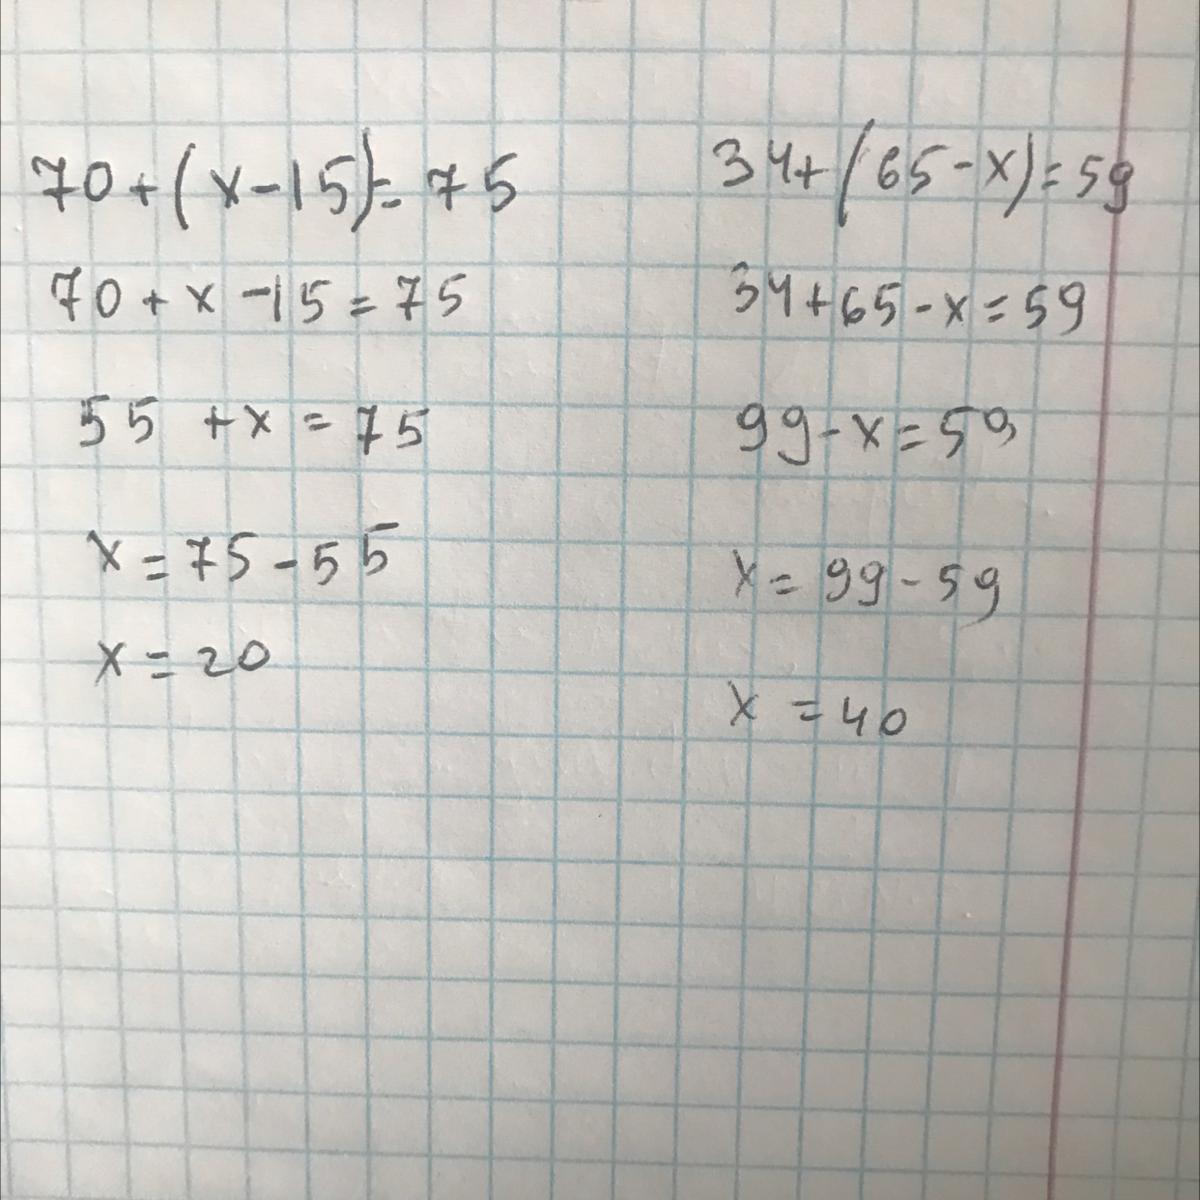 70+(x-15)=75
70+x-15=75
55 +x=75
x=75-55
x=20
34+(65-x)=59
34+65-x=59
99-x=59
x=99-59
x=40